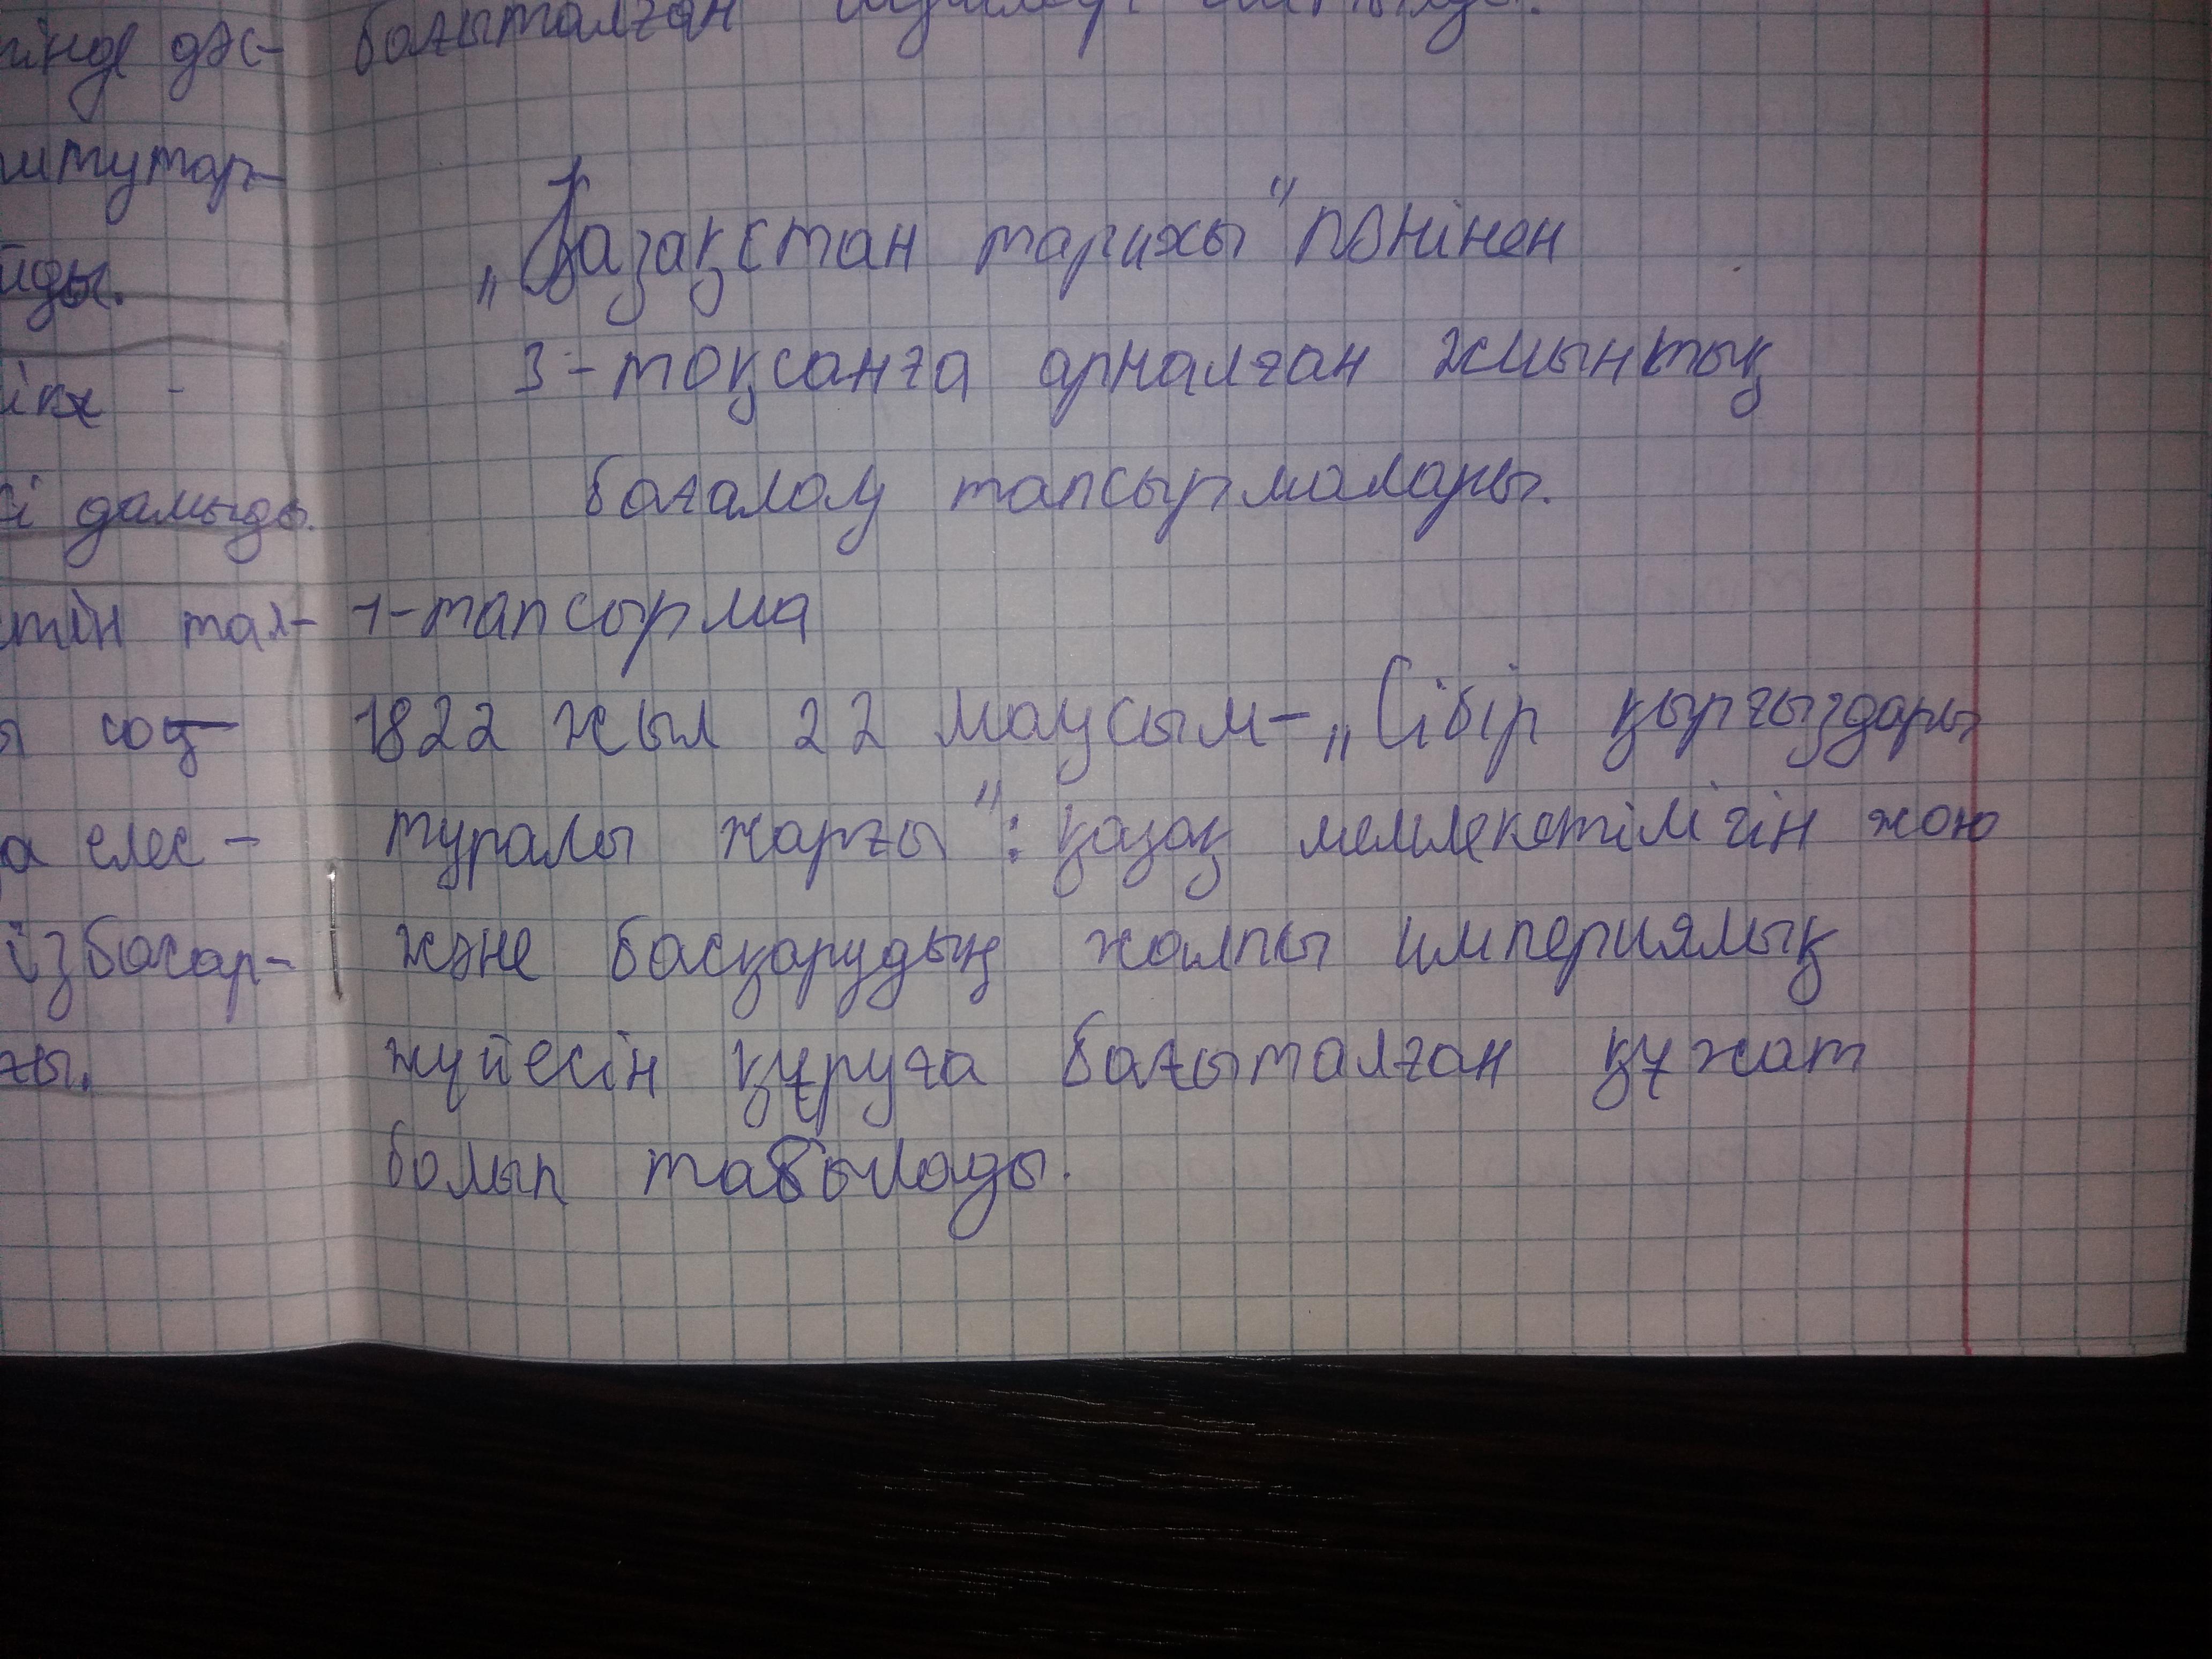 гінде дәс-
штутар-
йды.
і дамыды.
тал-
елес-
ізбасар-
ғы.
бағыталған
„Қазақстан тарихы" пәнінен
3-тоқсанға арналған жиынтық
бағалау тапсырмалары.
1-тапсырма
1822 жыл 22 маусым-„Сібір қырғыздары
туралы жарғы": қазақ мемлекетілігін жою
және басқарудың жалпы империялық
жүйесін құруға бағыталған құжат
болып табылады.